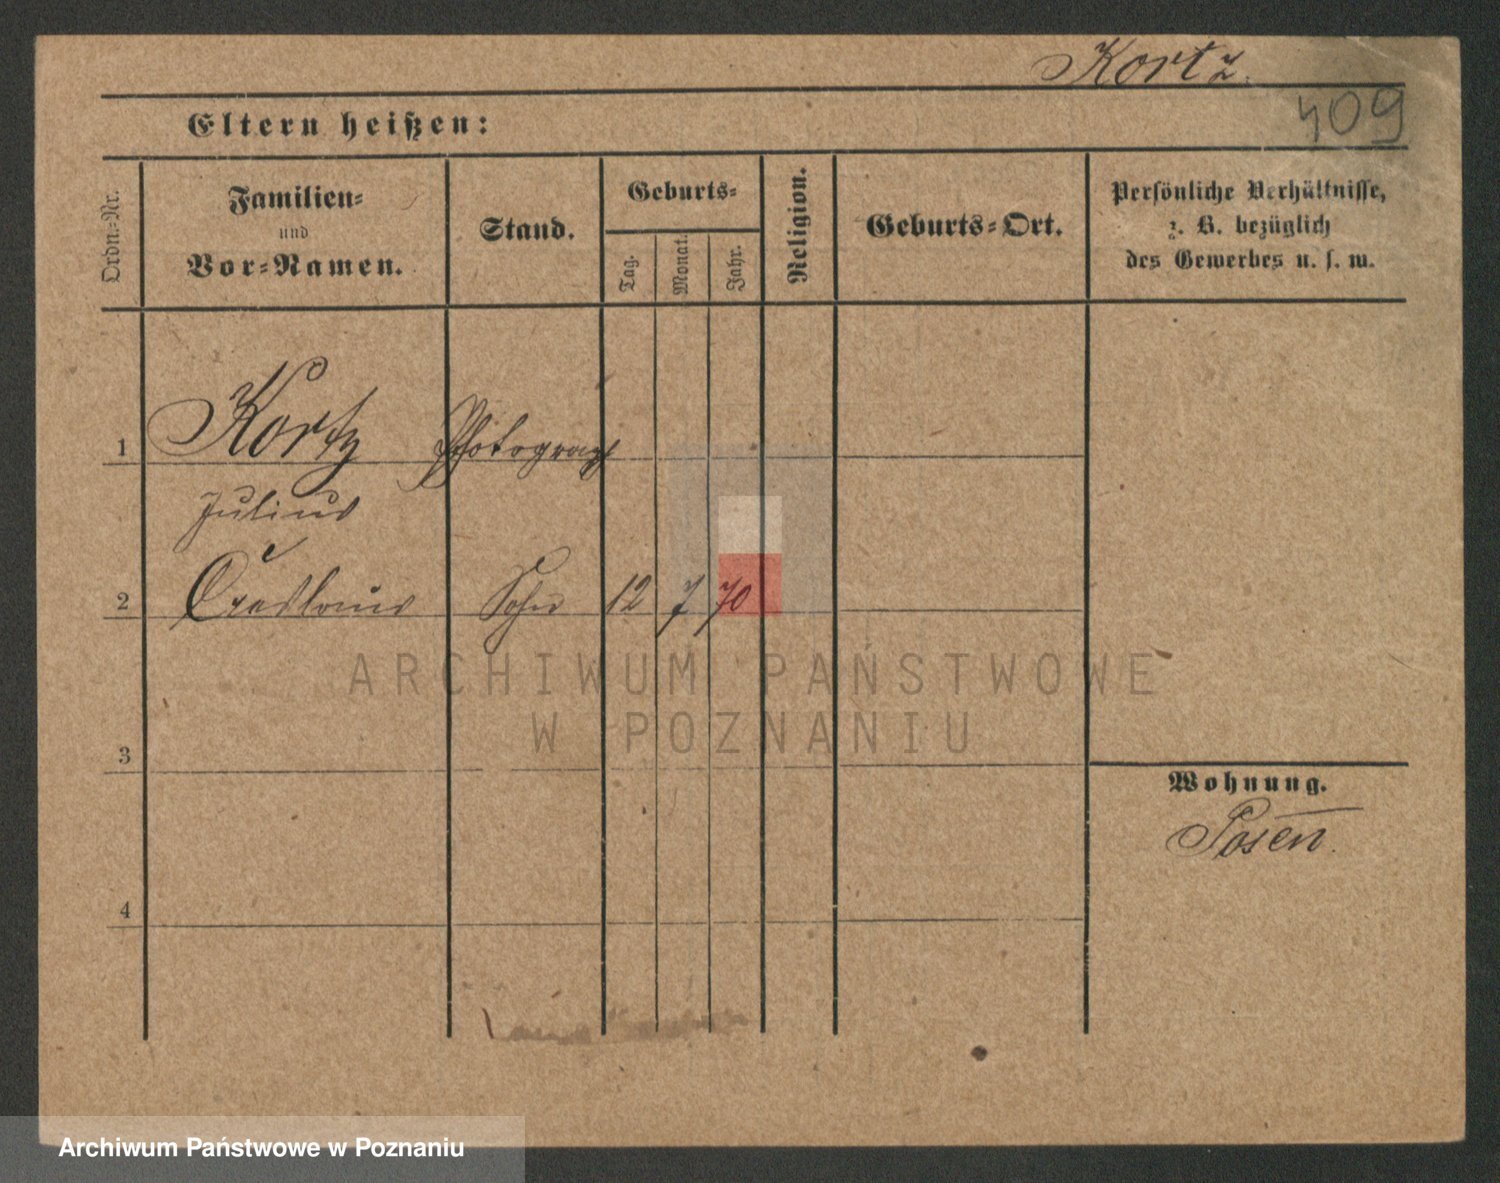 Kortz.
409
Eltern heißen:
Ordn.-Nr.
Familien-
und
Vor-Namen.
Stand.
Geburts-
Tag.
Monat.
Jahr.
Religion.
Geburts-Ort.
Persönliche Verhältnisse,
z. B. bezüglich
des Gewerbes u. s. w.
1 Kortz Photograph
Julius
2 Sohn 12 7 70
ARCHIWUM PAŃSTWOWE
W POZNANIU
3
Wohnung.
Posen.
4
Archiwum Państwowe w Poznaniu